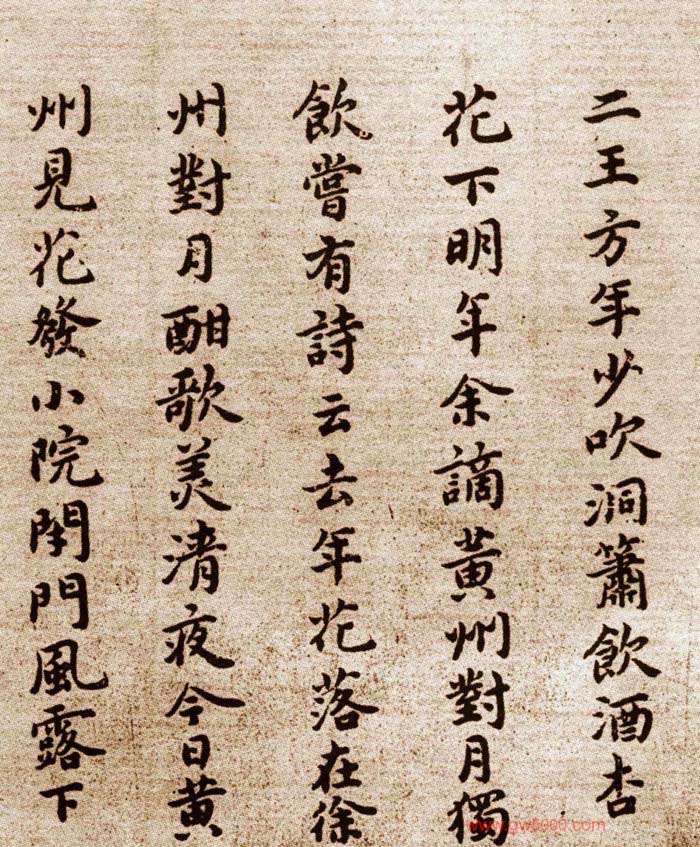 二王方年少吹洞簫飲酒杏
花下明年余謫黃州對月獨
飲嘗有詩云去年花落在徐
州對月酣歌美清夜今日黃
州見花發小院閉門風露下
www.gw5000.com